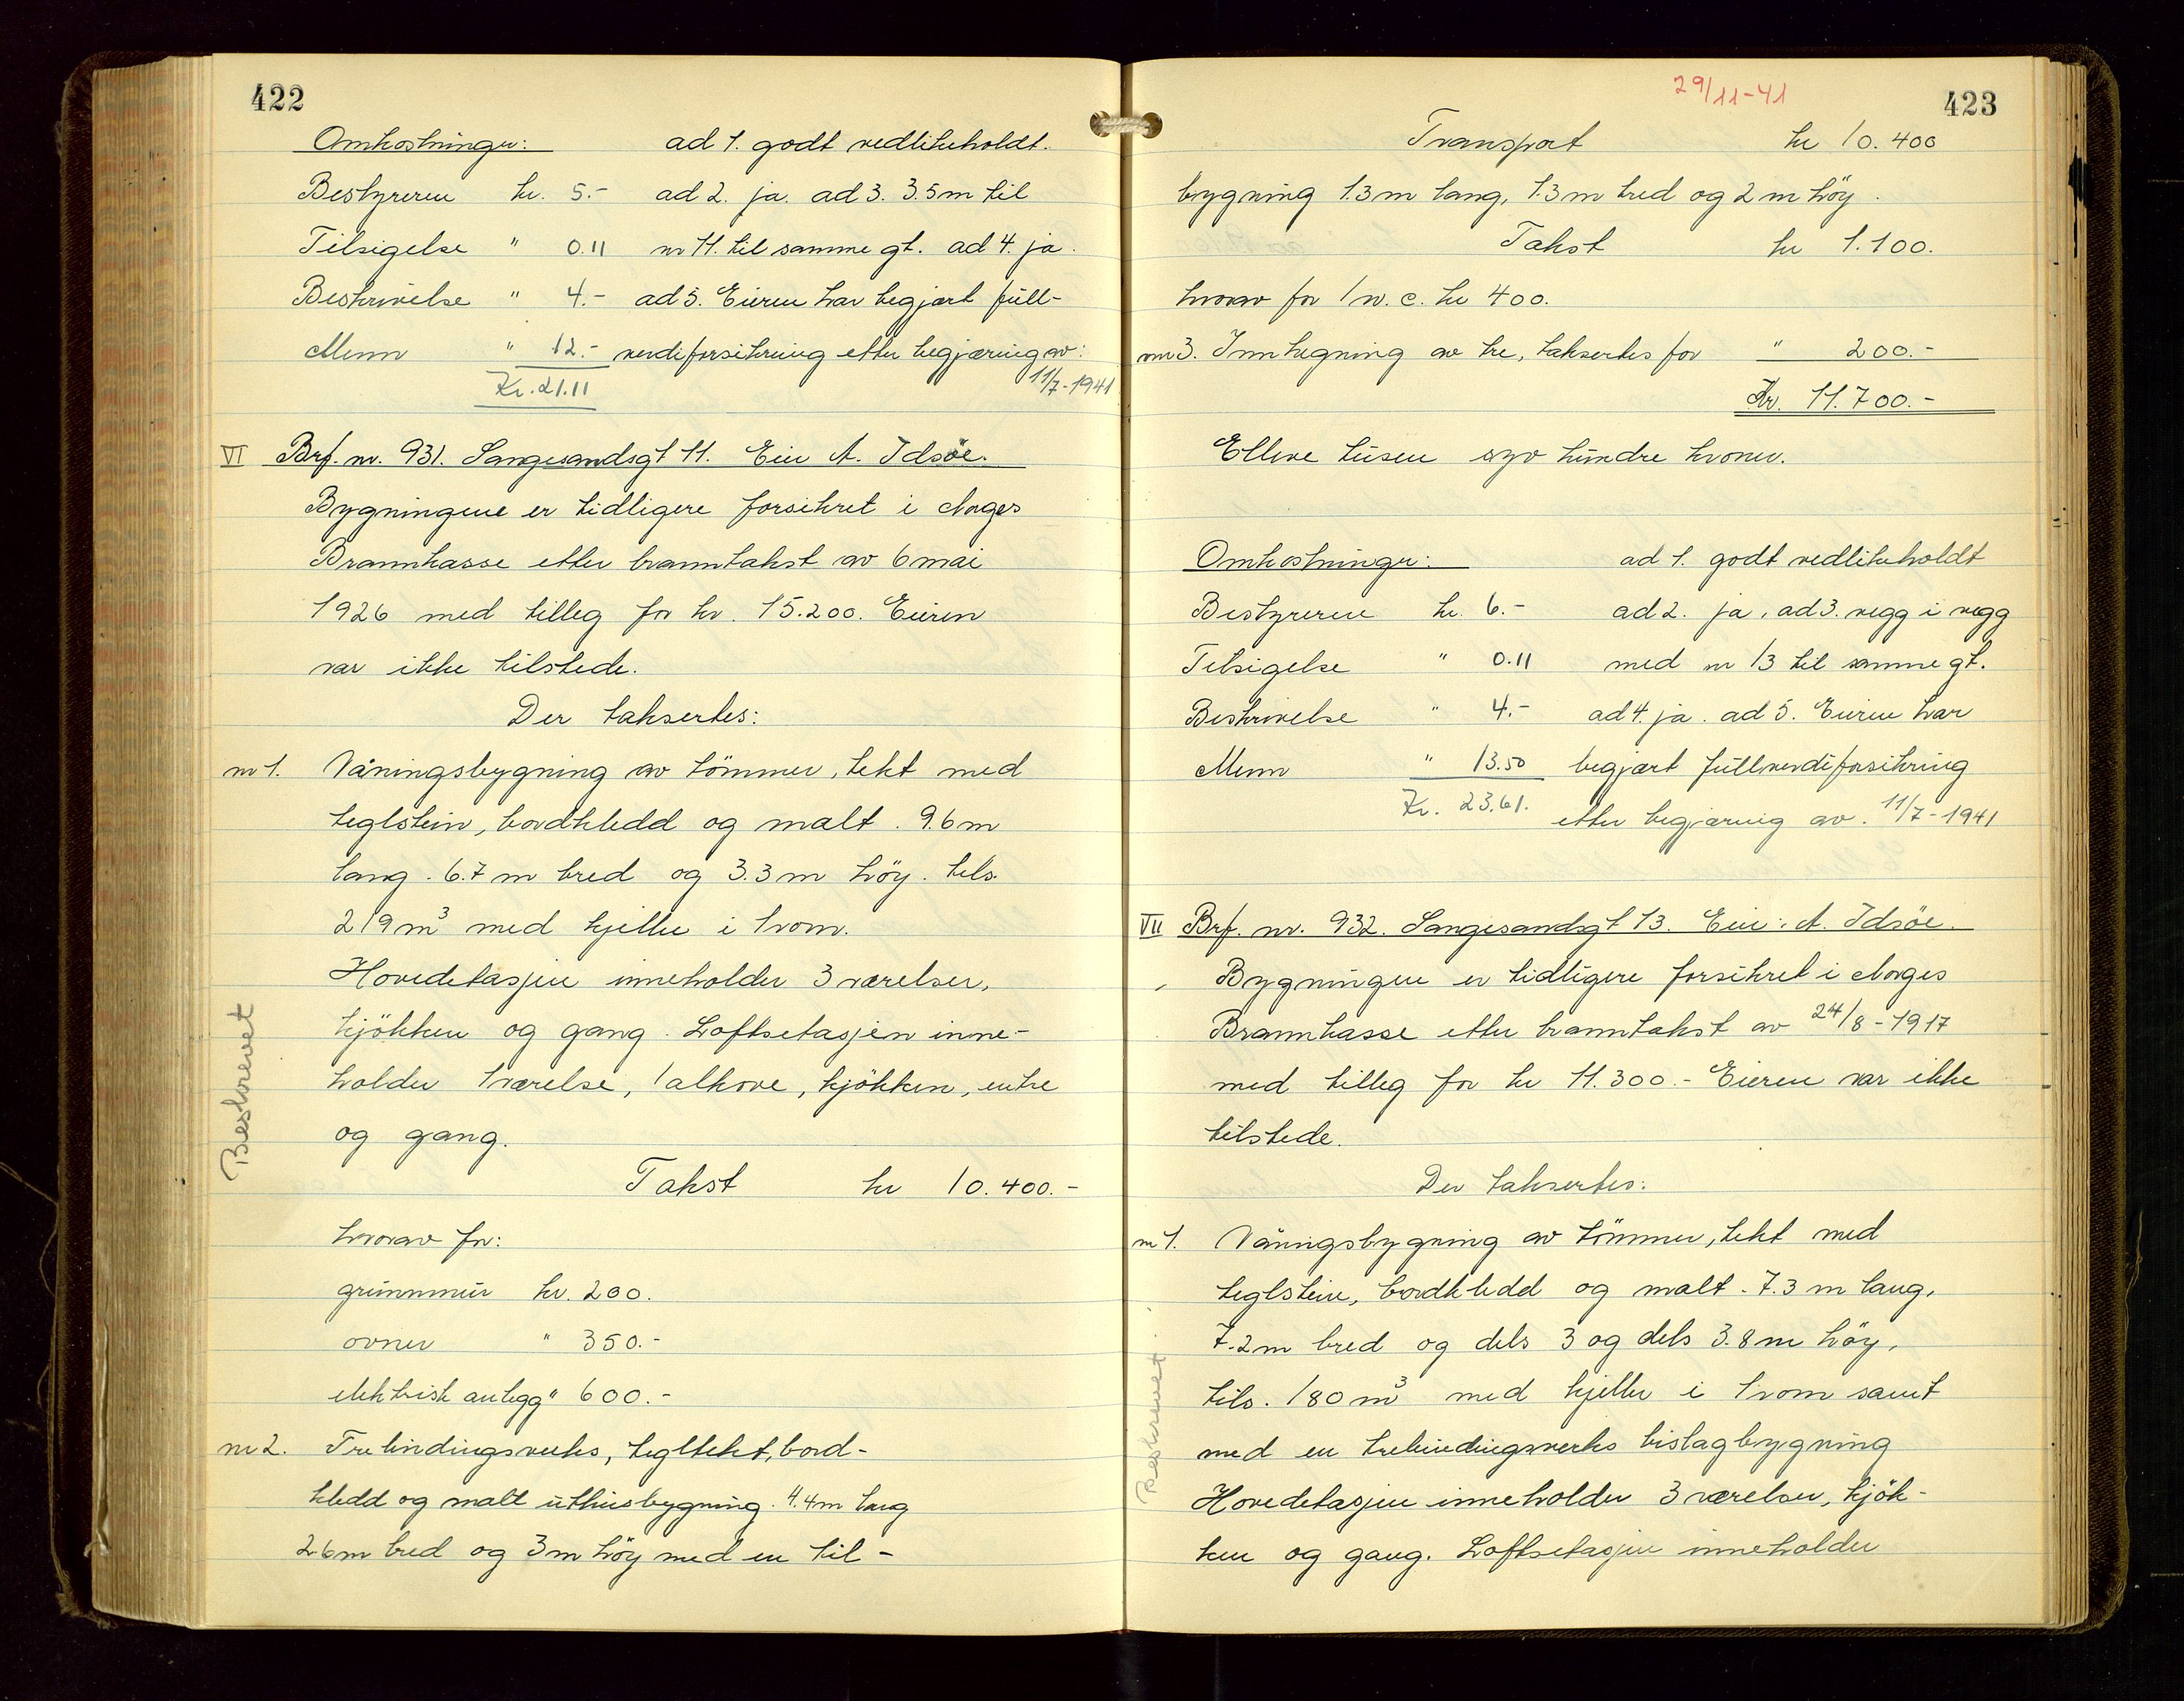 422
Omkostninger: ad 1. godt vedlikeholdt.
Bestyreren kr. 5.- ad 2. ja. ad 3. 3.5m til
Tilsigelse " 0.11 nr 11. til samme gt. ad 4. ja.
Beskrivelse " 4.- ad 5. Eieren har begjært full-
Menn " 12.- verdiforsikring etter begjæring av:
Kr. 21.11 11/7-1941
VI Brf. nr. 931. Sangesandsgt 11. Eier A. Idsöe.
Bygningene er tidligere forsikret i Norges
Brannkasse etter branntakst av 6 mai
1926 med tillegg for kr. 15.200. Eieren
var ikke tilstede.
Der taksertes:
nr 1. Våningsbygning av tömmer, tekt med
teglstein, bordkledd og malt. 9.6m
lang. 6.7 m bred og 3.3m höy. tils.
219 m³ med kjeller i 1 rom.
Hovedetasjen inneholder 3 værelser,
kjökken og gang. Loftsetasjen inne-
holder 1 værelse, 1 alkove, kjökken, entre
og gang.
Takst kr 10.400.-
hvorav for:
grunnmur kr. 200.
ovner " 350.-
elektrisk anlegg " 600.-
nr 2. Trebindingsverks, tegltekt, bord-
kledd og malt uthusbygning. 4.4m lang
2.6m bred og 3m höy med en til-
Beskrevet
29/11-41
423
Transport kr 10.400
bygning 1.3m lang, 1.3m bred og 2 m höy.
Takst kr 1.100.
hvorav for 1 w.c. kr 400.
nr 3. Innhegning av tre, taksertes for " 200.-
Kr. 11.700.-
Elleve tusen syv hundre kroner.
Omkostninger: ad 1. godt vedlikeholdt
Bestyreren kr. 6.- ad 2. ja, ad 3. vegg i vegg
Tilsigelse " 0.11 med nr 13 til samme gt.
Beskrivelse " 4.- ad 4. ja. ad 5. Eieren har
Menn " 13.50 begjært fullverdiforsikring
Kr. 23.61. etter begjæring av. 11/7-1941
VII Brf. nr. 932. Sangesandsgt 13. Eier: A. Idsöe.
Bygningen er tidligere forsikret i Norges
Brannkasse etter branntakst av 24/8-1917
med tillegg for kr 11.300.- Eieren var ikke
tilstede.
Der taksertes:
nr 1. Våningsbygning av tömmer, tekt med
teglstein, bordkledd og malt. 7.3 m lang,
7.2m bred og dels 3 og dels 3.8m höy,
tils. 180 m³ med kjeller i 1 rom samt
med en trebindingsverks bislagbygning
Hovedetasjen inneholder 3 værelser, kjök-
ken og gang. Loftsetasjen inneholder
Beskrevet